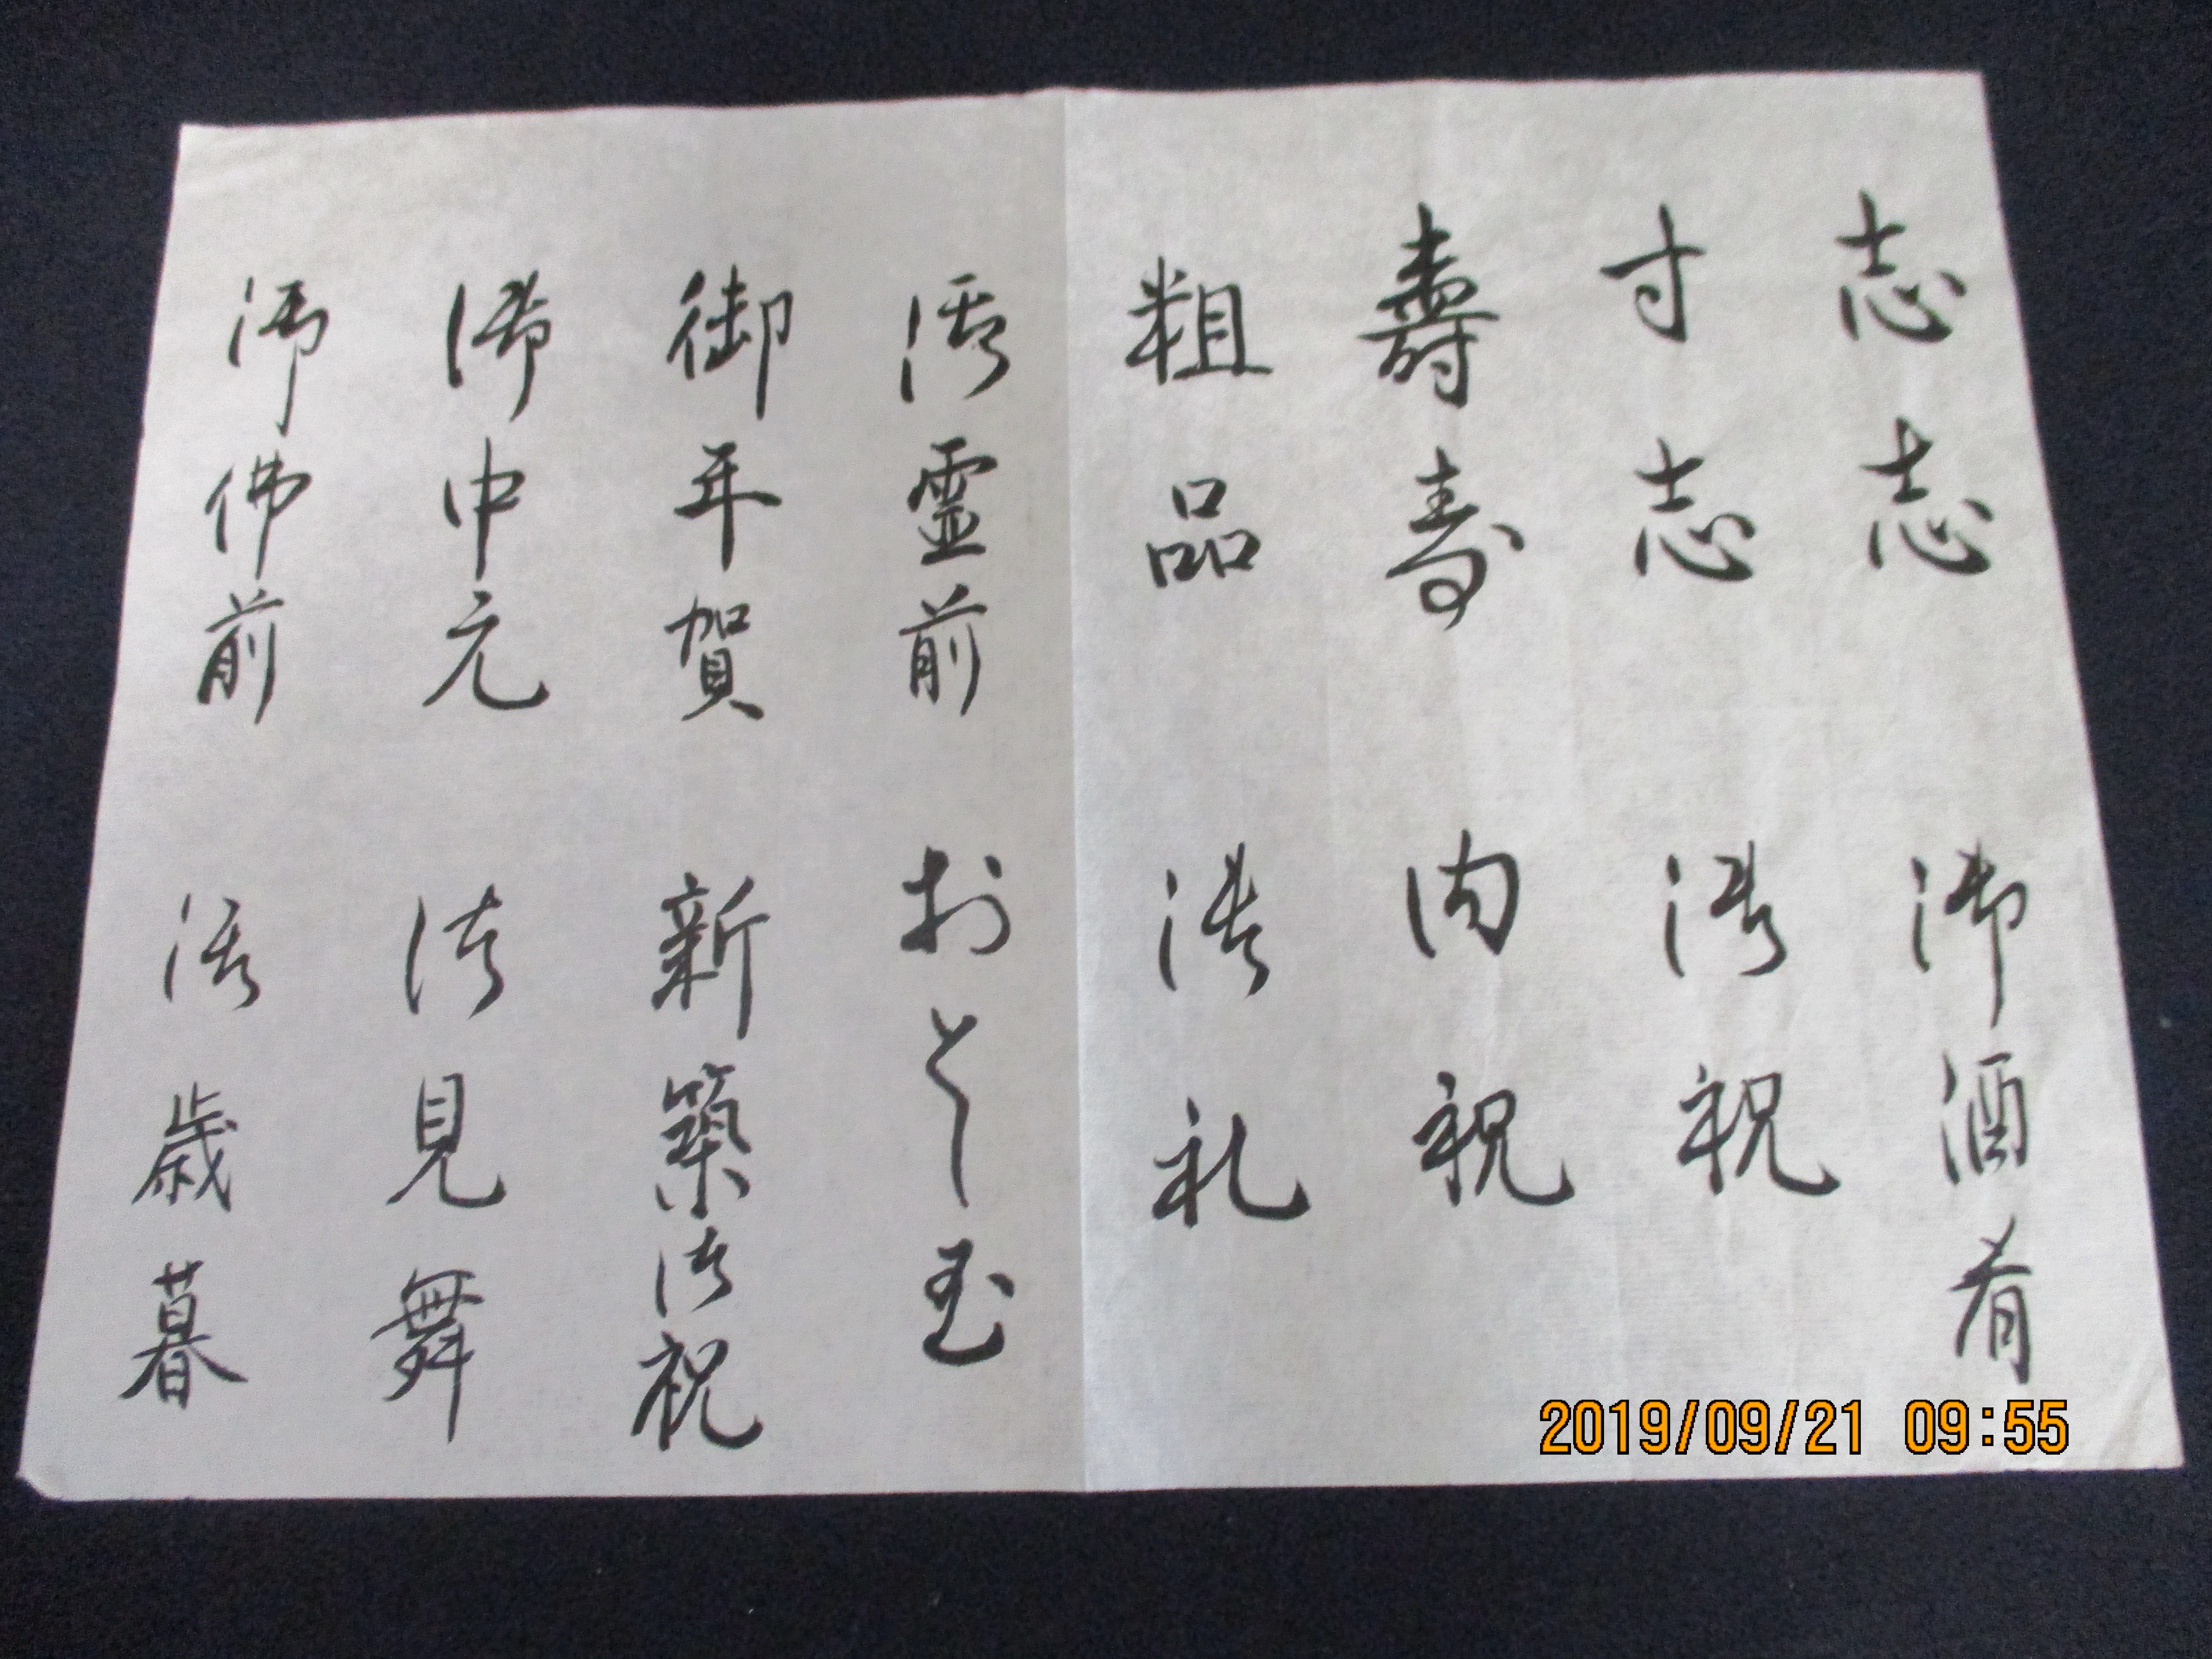 志志
御酒肴
寸志
御祝
壽寿
内祝
粗品
御礼
御霊前
おとし玉
御年賀
新築御祝
御中元
御見舞
御佛前
御歳暮
2019/09/21 09:55